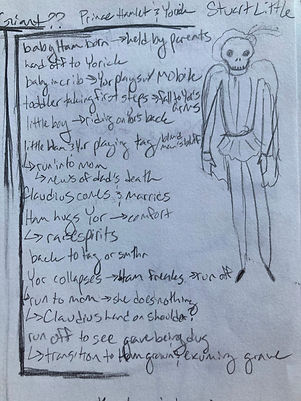 Giant?? Prince Hamlet & Yorick Stuart Little
baby Ham born → held by parents
hand off to Yorick
baby in crib → Yor plays w/ mobile
toddler taking first steps → fall to Yor's arms
little boy → riding on Yor's back
little Ham & Yor playing tag behind
↳ run into mom
↳ news of dad's death
Claudius comes & marries
Ham hugs Yor → comfort
↳ raise spirits
back to tag or smthn
Yor collapses → Ham freaks → run off
run to mom → she does nothing
↳ Claudius hand on shoulder?
run off to see grave being dug
↳ transition to Ham grown, exuming grave